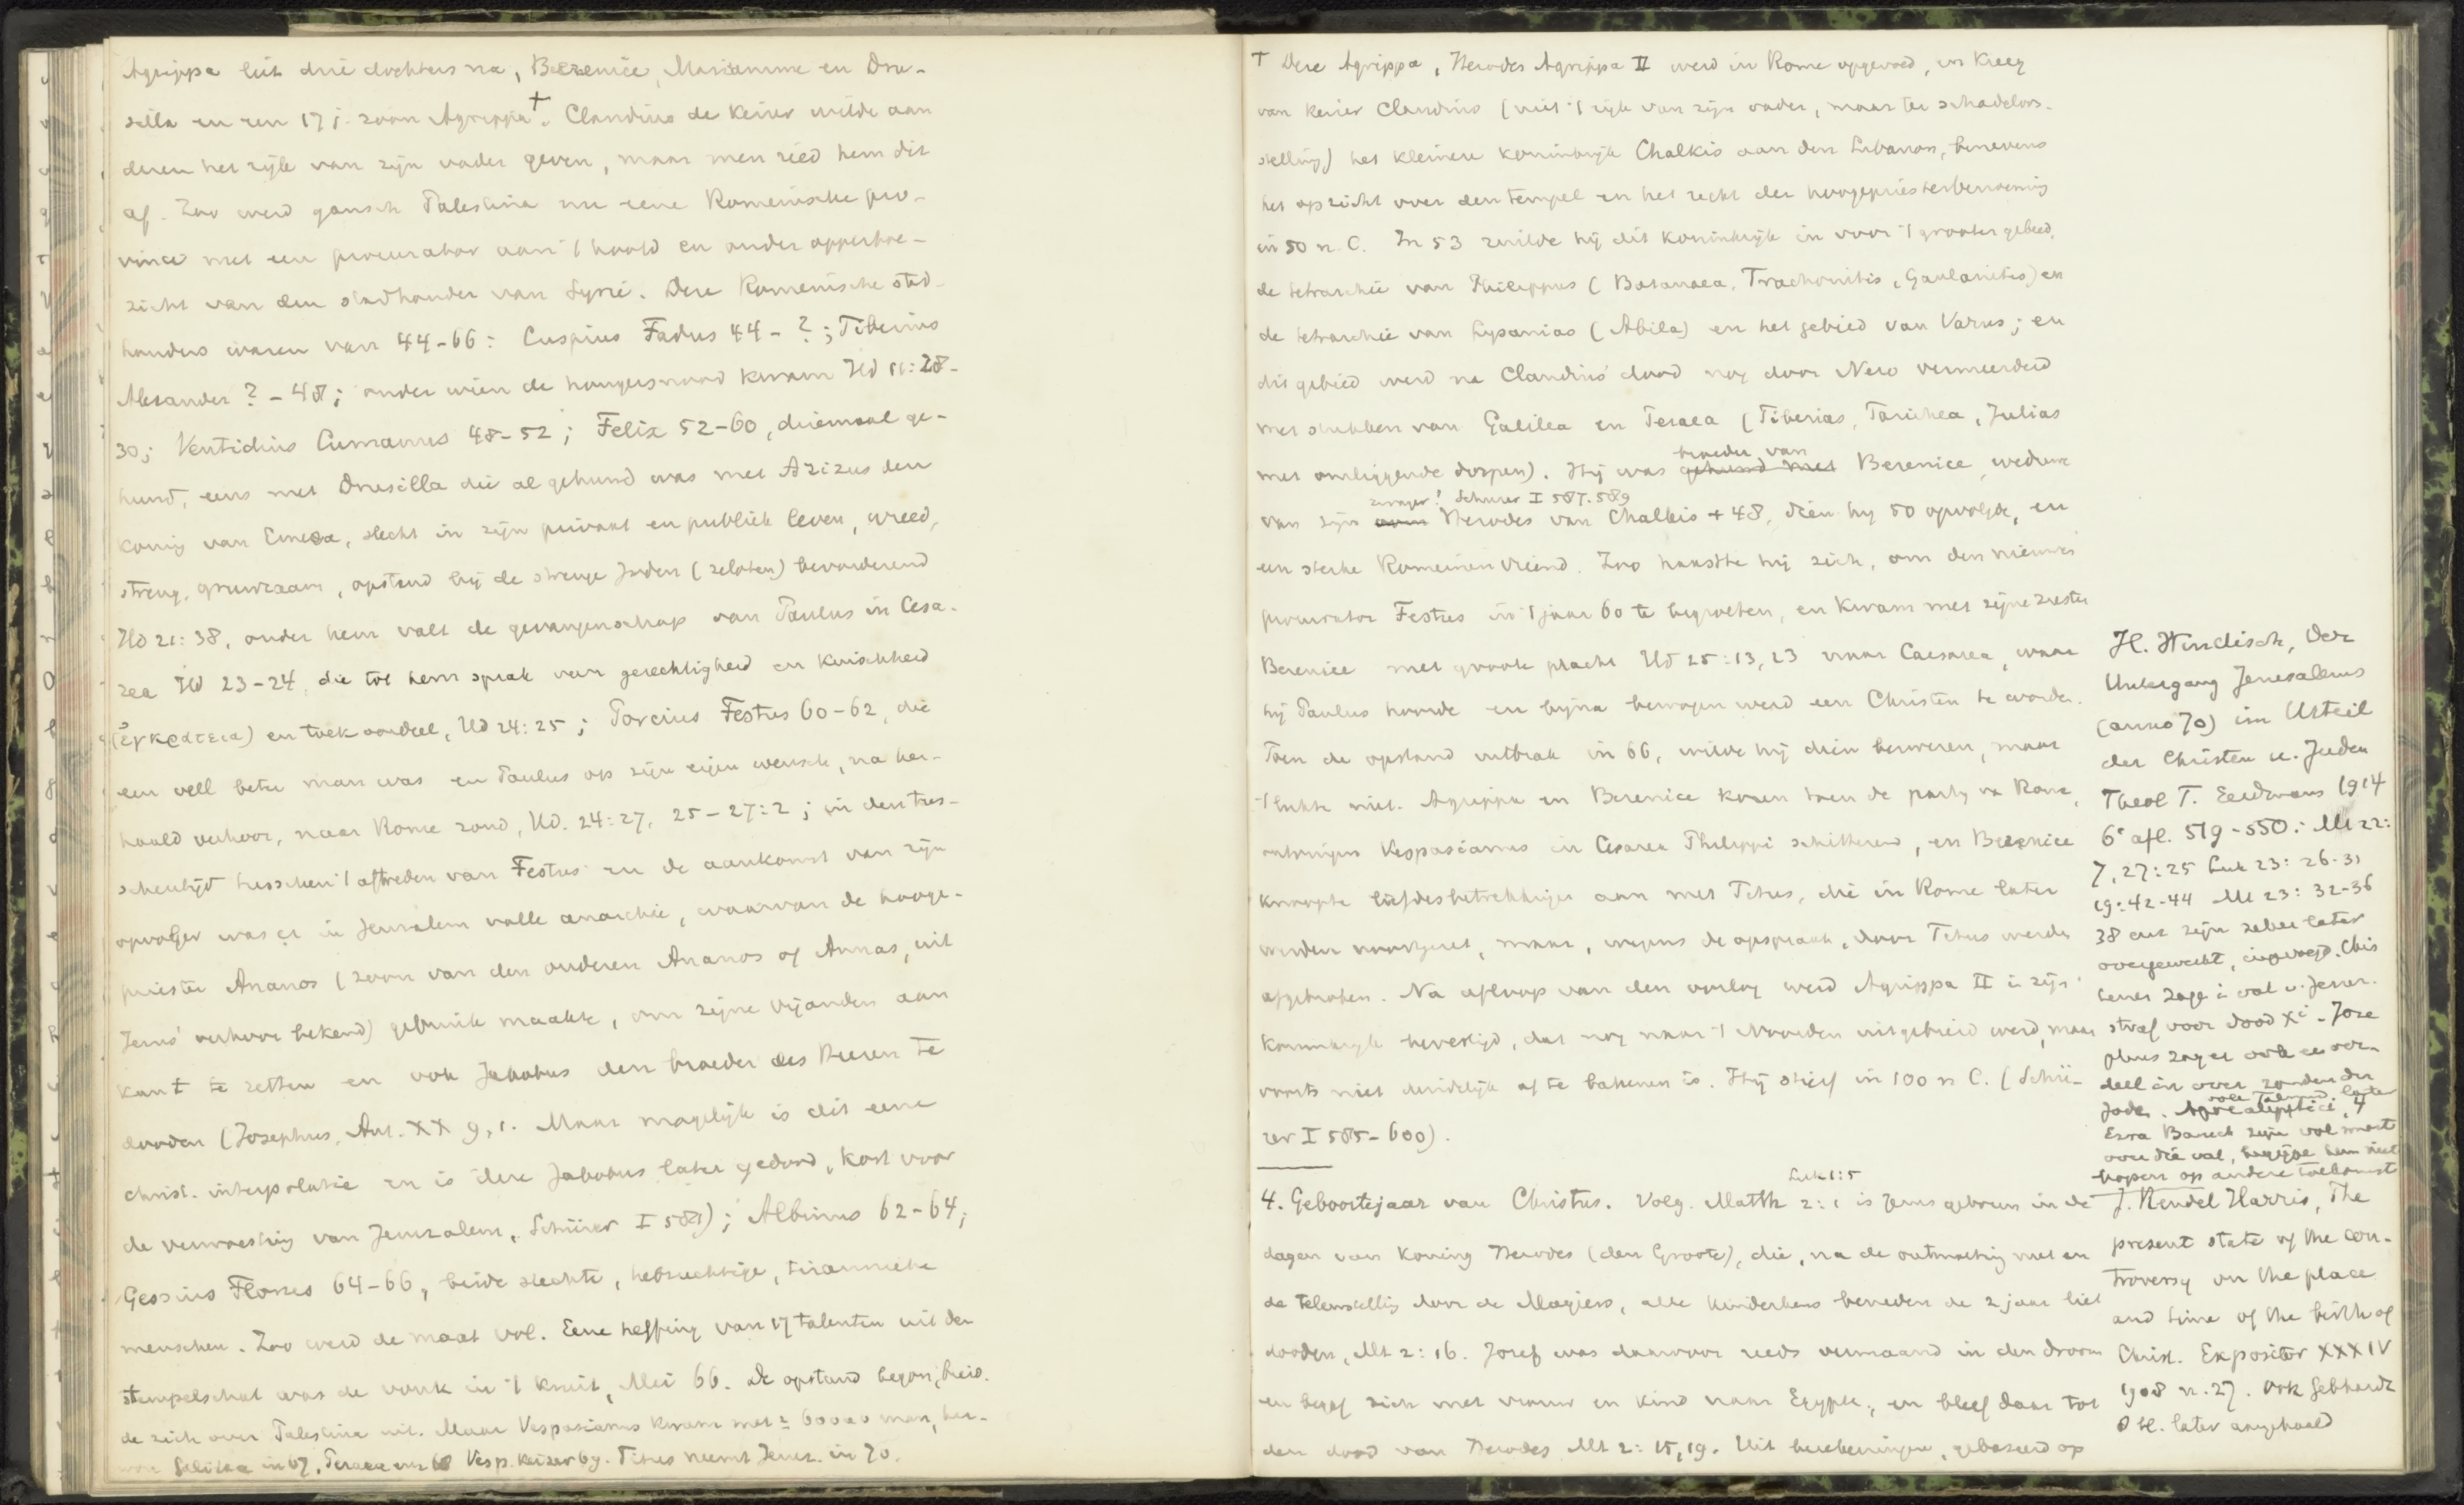 Agrippa liet drie dochters na, Berenice, Mariamme en Dru-
silla en een 17 j. zoon Agrippa †. Claudius de keizer wilde aan
dezen het rijk van zijn vader geven, maar men ried hem dit
af. Zoo werd gansch Palestina nu eene Romeinsche pro-
vincie met een procurator aan 't hoofd en onder oppertoe-
zicht van den stadhouder van Syrië. Deze Romeinsche stad-
houders waren van 44-66: Cuspius Fadus 44-?; Tiberius
Alexander ?-48; onder wien de hongersnood kwam Hd 11:28-
30; Ventidius Cumanus 48-52; Felix 52-60, driemaal ge-
huwd, eens met Drusilla die al gehuwd was met Azizus den
koning van Emesa, slecht in zijn privaat en publiek leven, wreed,
streng, gruwzaam, opstand bij de strenge Joden (zeloten) bevorderend
Hd 21:38, onder hem valt de gevangenschap van Paulus in Cesa-
rea Hd 23-24, die tot hem sprak van gerechtigheid en kuischheid
(ἐγκρατεια) en toek. oordeel, Hd 24:25; Porcius Festus 60-62, die
een veel beter man was en Paulus op zijn eigen wensch, na her-
haald verhoor, naar Rome zond, Hd. 24:27, 25-27:2; in den tus-
schentijd tusschen 't aftreden van Festus en de aankomst van zijn
opvolger was er in Jeruzalem volle anarchie, waarvan de hooge-
priester Ananos (zoon van den ouderen Ananos of Annas, uit
Jezus' verhoor bekend) gebruik maakte, om zijne vijanden aan
kant te zetten en ook Jakobus den broeder des Heeren te
dooden (Josephus, Ant. XX 9,1. Maar mogelijk is dit eene
christ. interpolatie en is deze Jakobus later gedood, kort voor
de verwoesting van Jeruzalem, Schürer I 581); Albinus 62-64;
Gessius Florus 64-66, beide slechte, hebzuchtige, tirannieke
menschen. Zoo werd de maat vol. Eene heffing van 17 talenten uit den
tempelschat was de vonk in 't kruit, Mei 66. De opstand begon, breid-
de zich over Palestina uit. Maar Vespasianus kwam met ± 60000 man, her-
won Galilea in 67, Peraea enz 68 Vesp. keizer 69. Titus neemt Jeruz. in 70.
† Deze Agrippa, Herodes Agrippa II werd in Rome opgevoed, en kreeg
van keizer Claudius (niet 't rijk van zijn vader, maar ter schadeloos-
stelling) het kleinere koninkrijk Chalkis aan den Libanon, benevens
het opzicht over den tempel en het recht der hoogepriesterbenoeming
in 50 n. C. In 53 ruilde hij dit koninkrijk in voor 't grooter gebied,
de tetrarchie van Philippus (Batanaea, Trachonitis, Gaulanitis) en
de tetrarchie van Lysanias (Abila) en het gebied van Varus; en
dit gebied werd na Claudius' dood nog door Nero vermeerderd
met stukken van Galilea en Peraea (Tiberias, Tarichea, Julias
met omliggende dorpen). Hij was gehuwd met broeder van Berenice, weduwe
van zijn oom zwager! Schurer I 587.589 Herodes van Chalkis + 48, dien hij 50 opvolgde, en
een sterke Romeinenvriend. Zoo haastte hij zich, om den nieuwen
procurator Festus in 't jaar 60 te begroeten, en kwam met zijne zuster
Berenice met groote pracht Hd 25:13,23 naar Caesarea, waar
hij Paulus hoorde en bijna bewogen werd een Christen te worden.
Toen de opstand uitbrak in 66, wilde hij dien bezweren, maar
't lukte niet. Agrippa en Berenice kozen toen de partij v. Rome,
ontvingen Vespasianus in Cesarea Philippi schitterend, en Berenice
knoopte liefdesbetrekkingen aan met Titus, die in Rome later
werden voortgezet, maar, wegens de opspraak, door Titus werden
afgebroken. Na afloop van den oorlog werd Agrippa II in zijn
koninkrijk bevestigd, dat nog naar 't Noorden uitgebreid werd, maar
voorts niet duidelijk af te bakenen is. Hij stierf in 100 n C. (Schü-
rer I 585-600).
4. Geboortejaar van Christus. Volg. Matth 2:1 Luk 1:5 is Jezus geboren in de
dagen van koning Herodes (den Groote), die, na de ontmoeting met en
de teleurstelling door de Magiers, alle kinderkens beneden de 2 jaar liet
dooden, Mt 2:16. Jozef was daarvoor reeds vermaand in den droom
en begaf zich met vrouw en kind naar Egypte, en bleef daar tot
den dood van Herodes Mt 2:15,19. Uit berekeningen, gebaseerd op
H. Windisch, Der
Untergang Jerusalems
(anno 70) im Urteil
der Christen u. Juden
Theol T. Eerdmans 1914
6e afl. 519-550: Mt 22:
7, 27:25 Luk 23:26-31
19:42-44 Mt 23:32-36
38 enz zijn later
ingevoegd. Chris
tenen zage i val v. Jeruz.
straf voor dood Xi. Jose
phus zag er ook een oor-
deel in over zonden der
Joden. ook Talmud. later
Apocalyptici, 4
Ezra Baruch zijn vol smart
over die val,
hopen op andere toekomst
J. Rendel Harris, The
present state of the con-
troversy on the place
and time of the birth of
Christ. Expositor XXXIV
1908 n. 27. Ook Gebhardt
later aangehaald